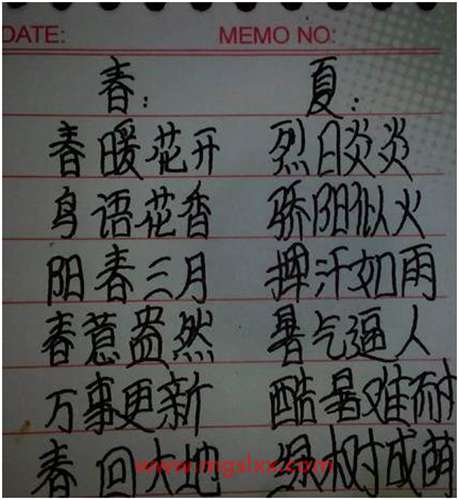 DATE: MEMO NO:
春: 夏:
春暖花开 烈日炎炎
鸟语花香 骄阳似火
阳春三月 挥汗如雨
春意盎然 暑气逼人
万事更新 酷暑难耐
春回大地 绿树成荫
www.mgslxx.com